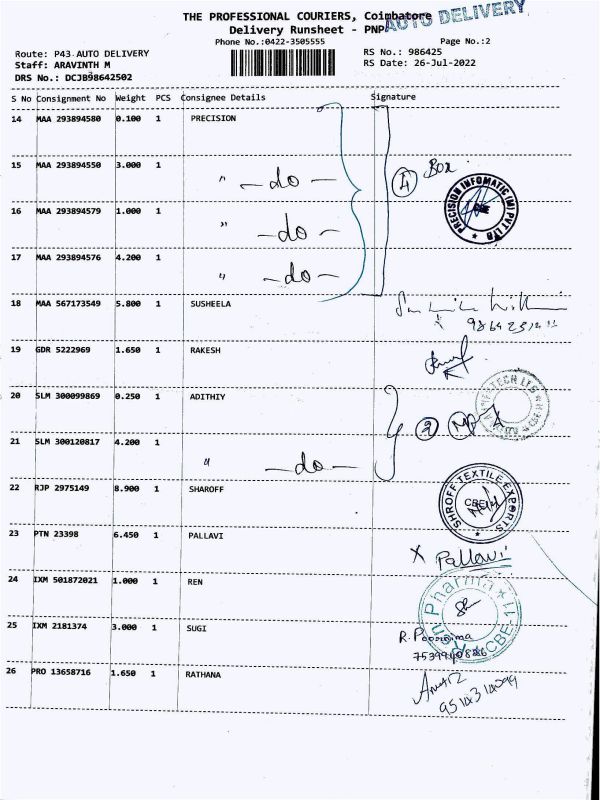 THE PROFESSIONAL COURIERS, Coimbatore
AUTO DELIVERY
Delivery Runsheet - PNP
Phone No.:0422-3505555
Page No.:2
Route: P43 AUTO DELIVERY
RS No.: 986425
Staff: ARAVINTH M
RS Date: 26-Jul-2022
DRS No.: DCJB98642502
S No Consignment No Weight PCS Consignee Details Signature
14 MAA 293894580 0.100 1 PRECISION
15 MAA 293894550 3.000 1
" —do—
4 Box
PRECISION INFOMATIC (M) PVT LTD
CBE
16 MAA 293894579 1.000 1
" —do—
17 MAA 293894576 4.200 1
" —do—
18 MAA 567173549 5.800 1 SUSHEELA
19 GDR 5222969 1.650 1 RAKESH
20 SLM 300099869 0.250 1 ADITHIY
2
21 SLM 300120817 4.200 1
" —do—
22 RJP 2975149 8.900 1 SHAROFF
SHROFF TEXTILE EXPORTS
CBE
23 PTN 23398 6.450 1 PALLAVI
X Pallavi
24 IXM 501872021 1.000 1 REN
Pharma
CBE
25 IXM 2181374 3.000 1 SUGI
R. Poornima
26 PRO 13658716 1.650 1 RATHANA